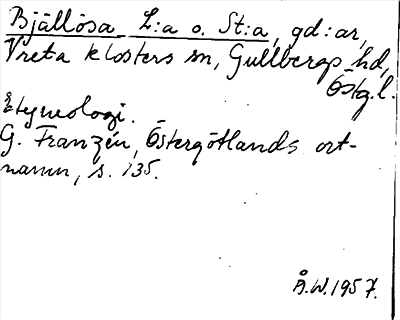 Bjällösa L:a o. St:a, gd:ar,
Vreta klosters sn, Gullbergs hd,
Östg.l.
Etymologi.
G. Franzén, Östergötlands ort-
namn, s. 135.
Å.W.1957.